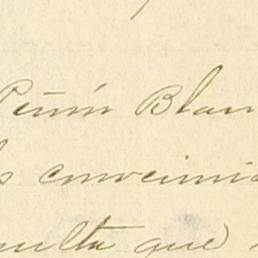 Peñón Blan
s convcimi
sulta que